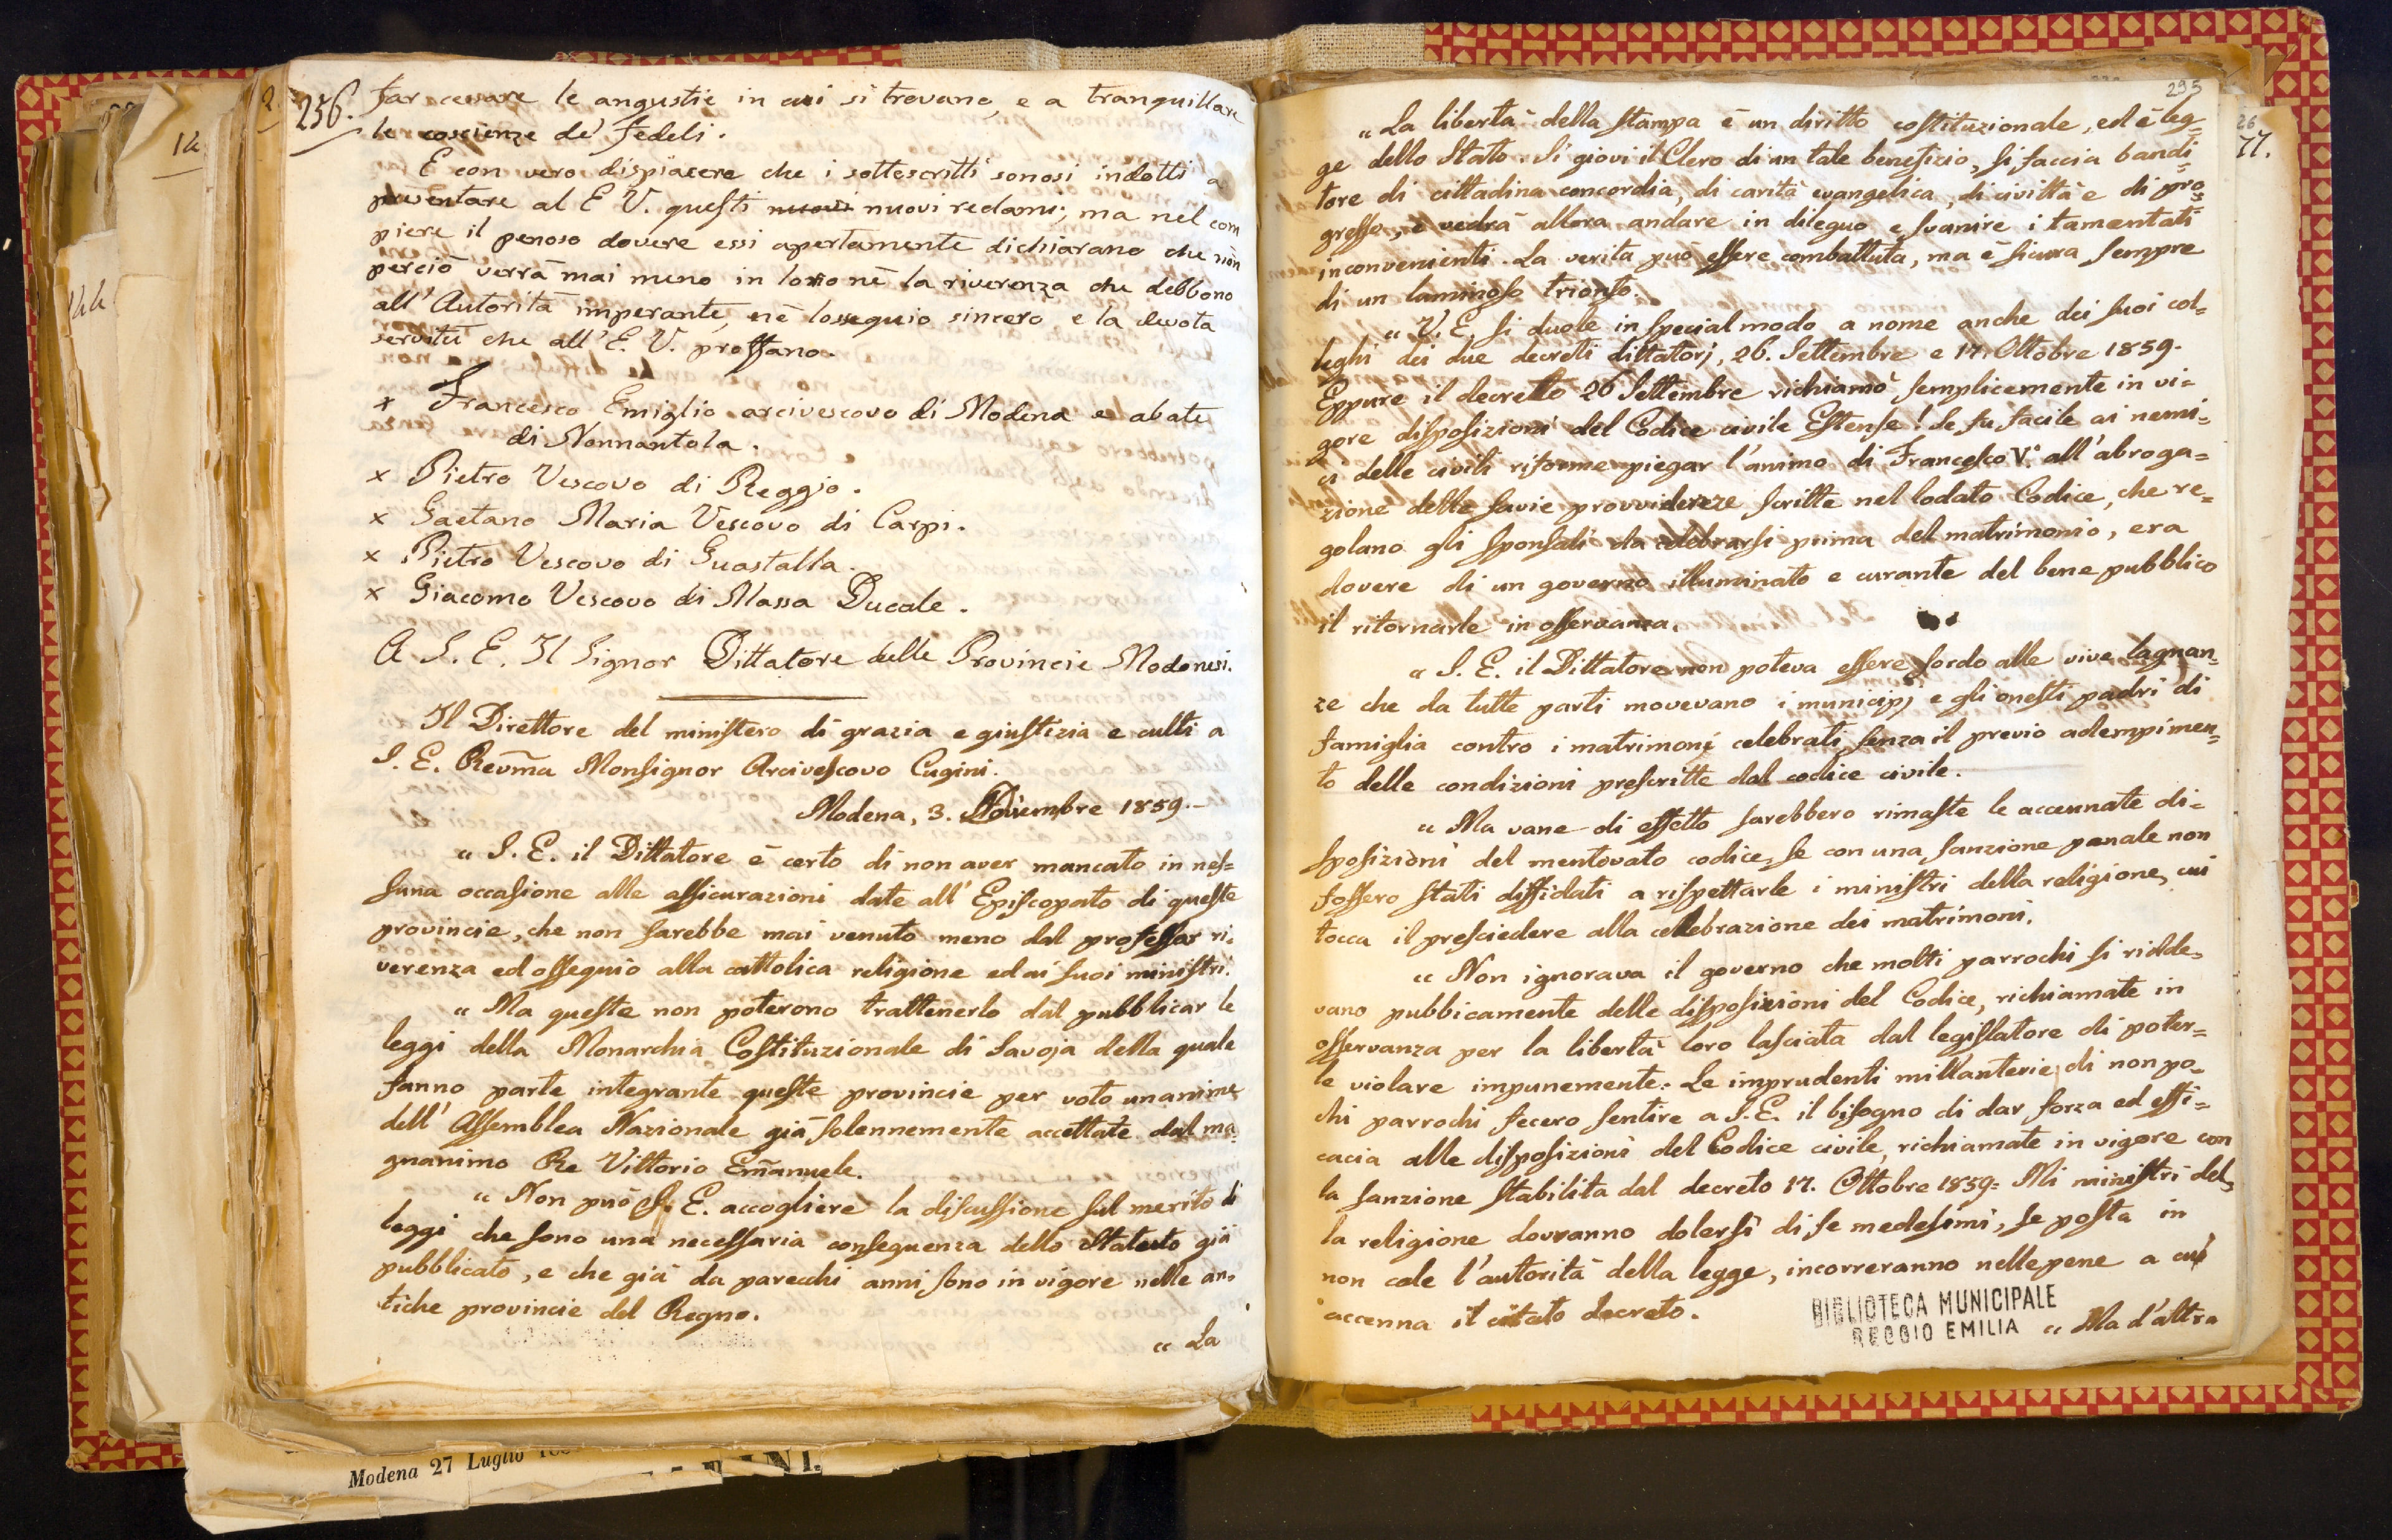 256.
far cessare le angustie in cui si trovano, e a tranquillare
le coscienze de' fedeli.
E con vero dispiacere che i sottoscritti sonosi indotti a
presentare al E V. questi nuovi reclami; ma nel com
piere il penoso dovere essi apertamente dichiarano che non
perciò verrà mai meno in loro nè la riverenza che debbono
all' Autorità imperante, nè l'ossequio sincero e la devota
servitù che all' E. V. professano.
x Francesco Emiglio arcivescovo di Modena e abate
di Nonnantola.
x Pietro Vescovo di Reggio.
x Gaetano Maria Vescovo di Carpi.
x Pietro Vescovo di Guastalla.
x Giacomo Vescovo di Massa Ducale.
A S. E. Il Signor Dittatore delle Provincie Modonesi.
Il Direttore del ministero di grazia e giustizia e culti a
S. E. Revma Monsignor Arcivescovo Cugini.
Modena, 3. Novembre 1859.
" S. E. il Dittatore è certo di non aver mancato in nes=
suna occasione alle assicurazioni date all' Episcopato di queste
provincie, che non sarebbe mai venuto meno dal professar ri=
verenza ed ossequio alla cattolica religione ed ai suoi ministri.
" Ma queste non poterono trattenerlo dal pubblicar le
leggi della Monarchia Costituzionale di Savoja della quale
fanno parte integrante queste provincie per voto unanime
dell' Assemblea Nazionale già solennemente accettate dal ma=
gnanimo Re Vittorio Emanuele.
" Non può S. E. accogliere la discussione sul merito di
leggi che sono una necessaria conseguenza dello Statuto già
pubblicato, e che già da parecchi anni sono in vigore nelle an=
tiche provincie del Regno.
" La
Modena 27 Luglio
1a
295
26
77.
" La libertà della stampa è un diritto costituzionale, ed è leg=
ge dello Stato. Si giovi il Clero di un tale benefizio, si faccia bandi=
tore di cittadina concordia, di carità evangelica, di civiltà e di pro=
gresso, e vedrà allora andare in dileguo e svanire i lamentati
inconvenienti. La verità può essere combattuta, ma è sicura sempre
di un luminoso trionfo.
" V. E. si duole in special modo a nome anche dei suoi col=
leghi dei due decreti dittatorj, 26. Settembre e 17. Ottobre 1859.
Eppure il decretto 26 Settembre richiamò semplicemente in vi=
gore disposizioni del Codice civile Estense! Se fu facile ai nemi=
ci delle civili riforme piegar l'animo di Francesco V.° all'abroga=
zione delle savie provvidenze scritte nel lodato Codice, che re=
golano gli sponsali da celebrarsi prima del matrimonio, era
dovere di un governo illuminato e curante del bene pubblico
il ritornarle in osservanza.
" S. E. il Dittatore non poteva essere sordo alle vive lagnan=
ze che da tutte parti movevano i municipj e gli onesti padri di
famiglia contro i matrimonj celebrati senza il previo adempimen=
to delle condizioni prescritte dal codice civile.
" Ma vane di effetto sarebbero rimaste le accennate di=
sposizioni del mentovato codice, se con una sanzione penale non
fossero stati diffidati a rispettarle i ministri della religione, cui
tocca il presciedere alla celebrazione dei matrimoni.
" Non ignorava il governo che molti parrochi si ridde=
vano pubbicamente delle disposizioni del Codice, richiamate in
osservanza per la libertà loro lasciata dal legislatore di poter=
le violare impunemente. Le imprudenti millanterie di non po=
chi parrochi fecero sentire a S. E. il bisogno di dar forza ed effi=
cacia alle disposizioni del Codice civile, richiamate in vigore con
la sanzione stabilita dal decreto 17. Ottobre 1859. Mi ministri del=
la religione dovranno dolersi di se medesimi, se posta in
non cale l'autorità della legge, incorreranno nelle pene a cui
accenna il citato decreto.
BIBLIOTECA MUNICIPALE
REGGIO EMILIA
" Ma d'altra